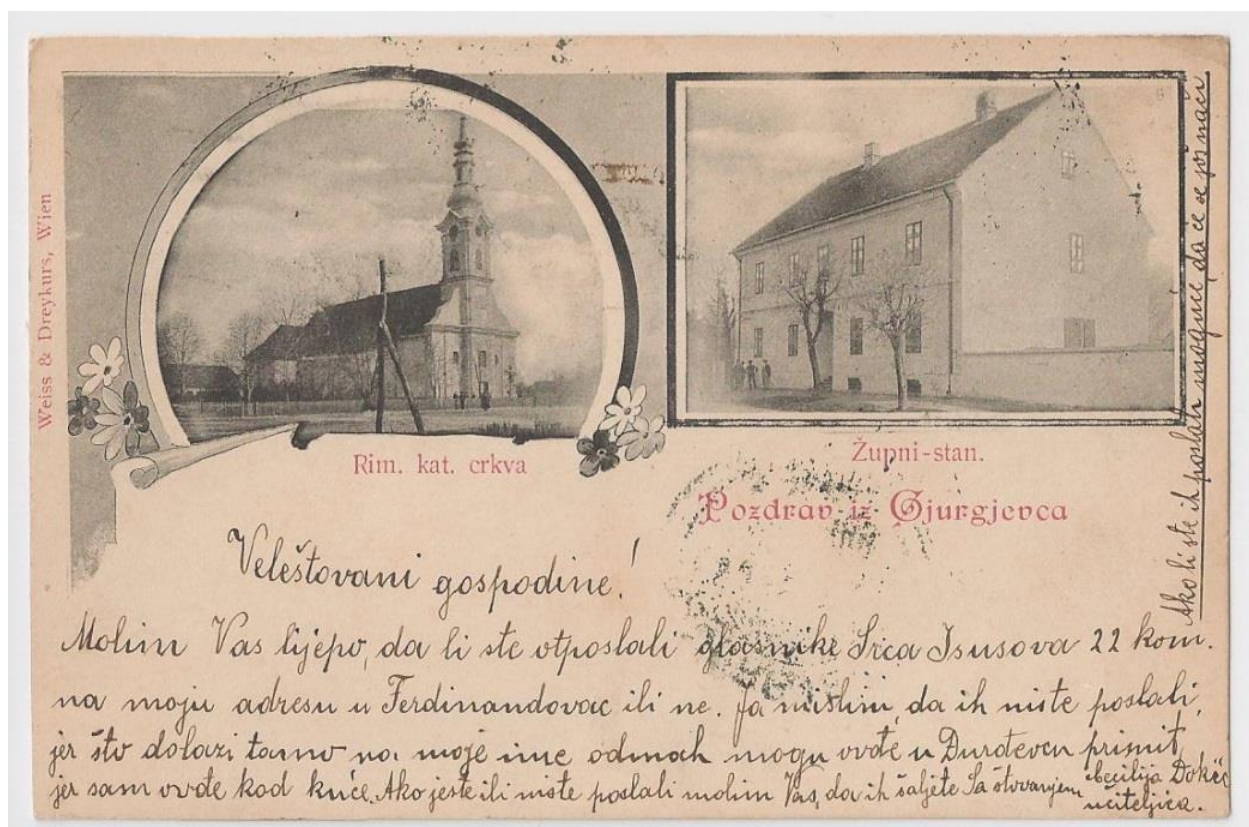 Weiss & Dreykurs, Wien
Rim. kat. crkva
Župni-stan.
Pozdrav iz Gjurgjevca
Veleštovani gospodine!
Molim Vas lijepo, da li ste otposlali glasnike Srca Isusova 22 kom.
na moju adresu u Ferdinandovac ili ne. Ja mislim, da ih niste poslali,
jer što dolazi tamo na moje ime odmah mogu ovđe u Đurđevcu primit,
jer sam ovđe kod kuće. Ako jeste ili niste poslali molim Vas, da ih šaljete Sa štovanjem Cecilija
učiteljica.
Ako li ste ih poslali moguće, da će se još naći